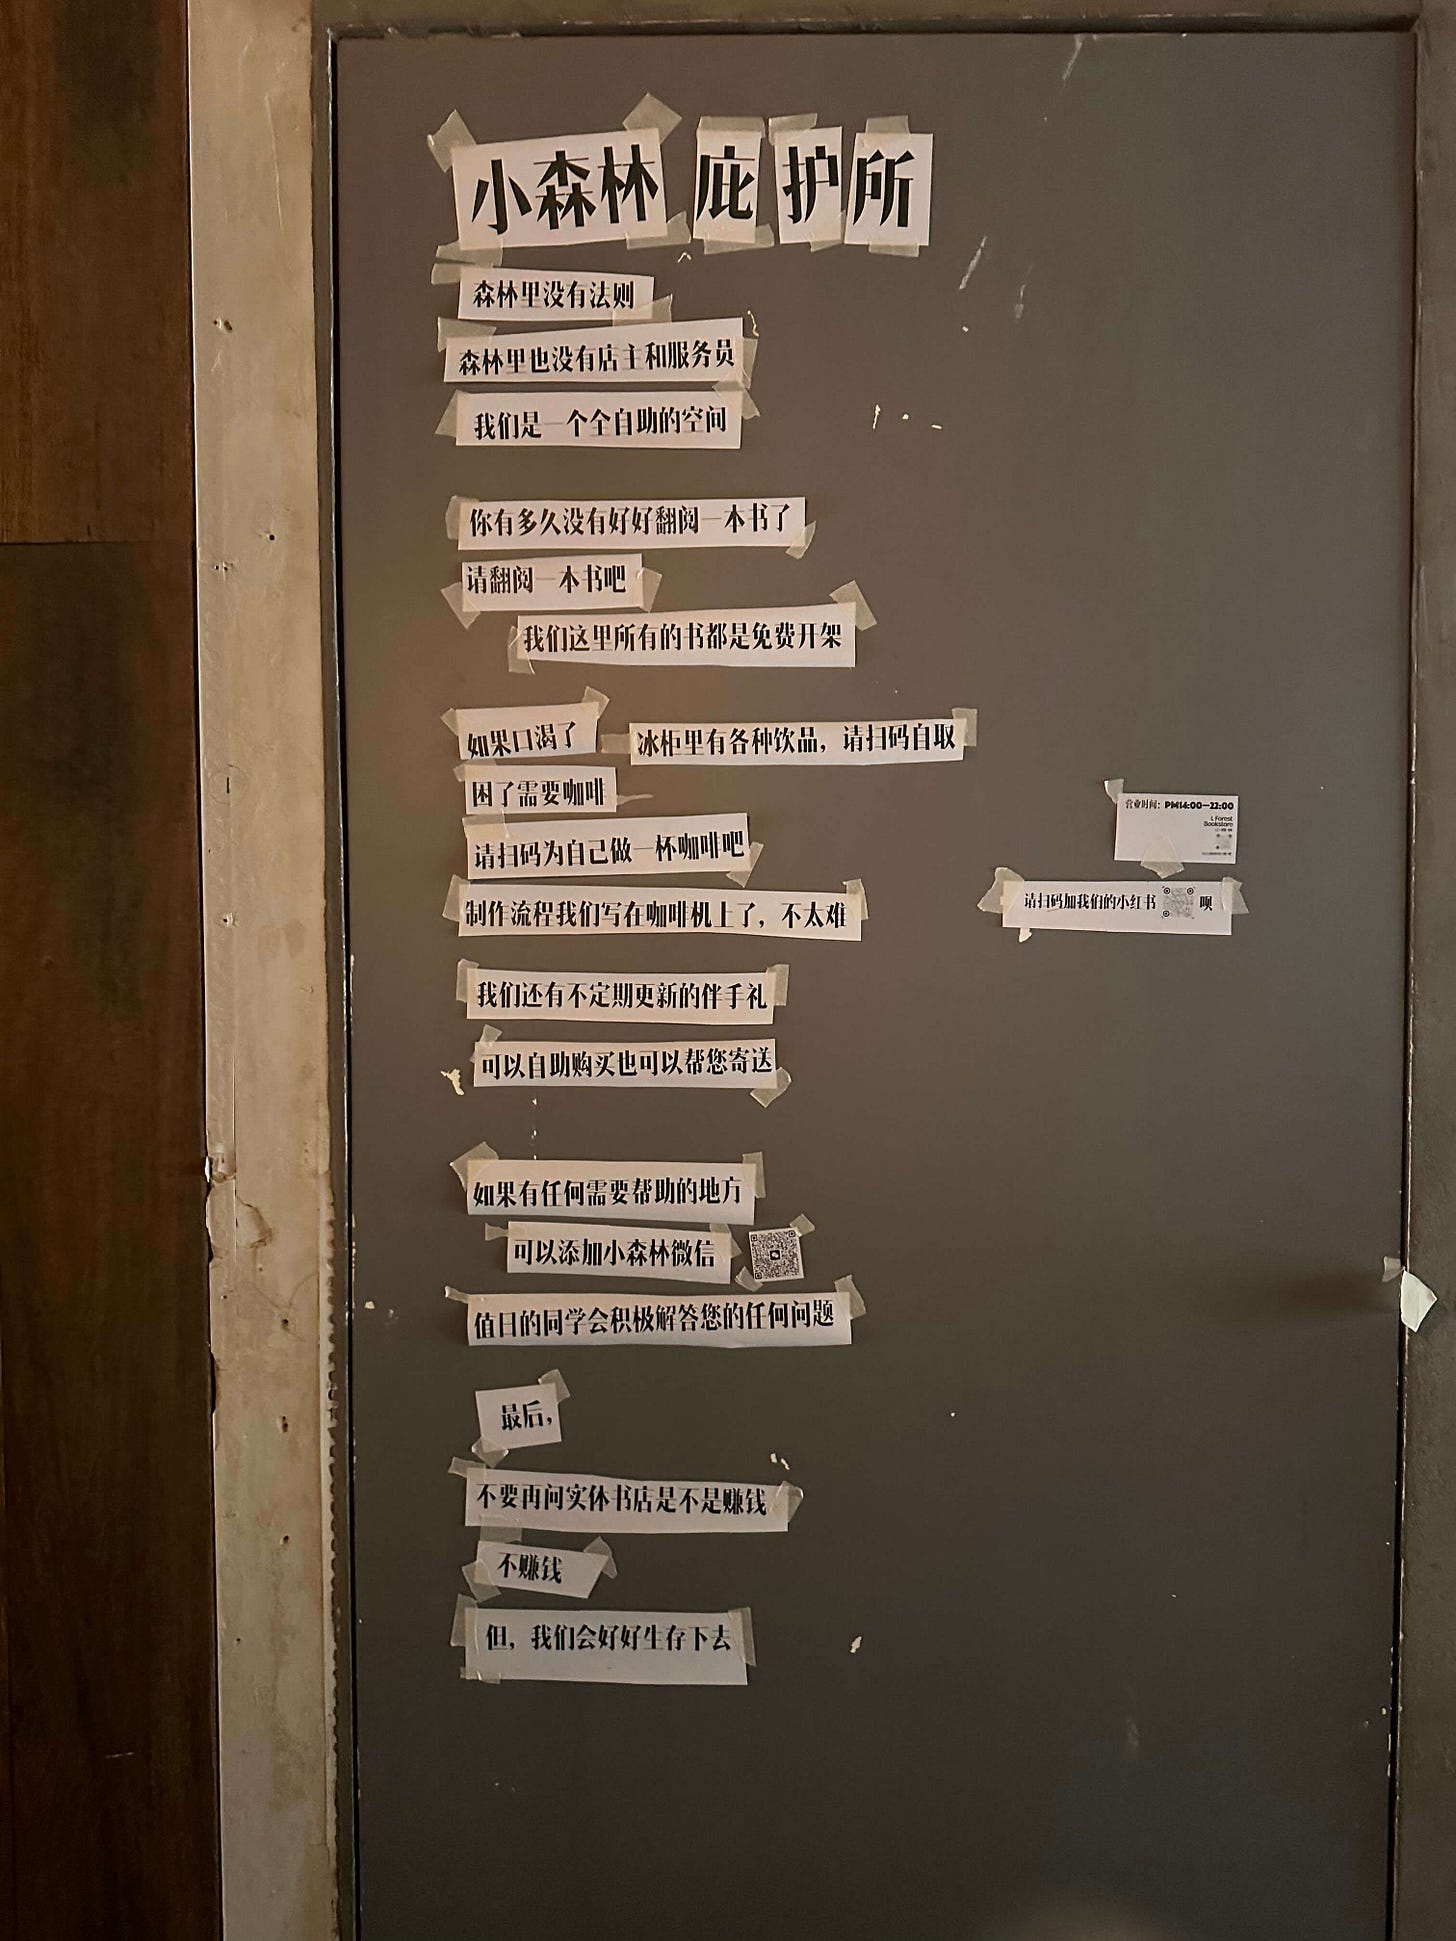 小森林 庇护所
森林里没有法则
森林里也没有店主和服务员
我们是一个全自助的空间
你有多久没有好好翻阅一本书了
请翻阅一本书吧
我们这里所有的书都是免费开架
如果口渴了 冰柜里有各种饮品，请扫码自取
困了需要咖啡
请扫码为自己做一杯咖啡吧
制作流程我们写在咖啡机上了，不太难
我们还有不定期更新的伴手礼
可以自助购买也可以帮您寄送
如果有任何需要帮助的地方
可以添加小森林微信
值日的同学会积极解答您的任何问题
最后，
不要再问实体书店是不是赚钱
不赚钱
但，我们会好好生存下去
营业时间：PM14:00—22:00
L Forest
Bookstore
请扫码加我们的小红书 呗